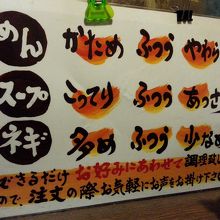 めん かため ふつう やわら
スープ こってり ふつう あっさ
ネギ 多め ふつう 少なめ
できるだけ お好みにあわせて 調理致し
ので、注文の際お気軽にお声をお掛け下さい